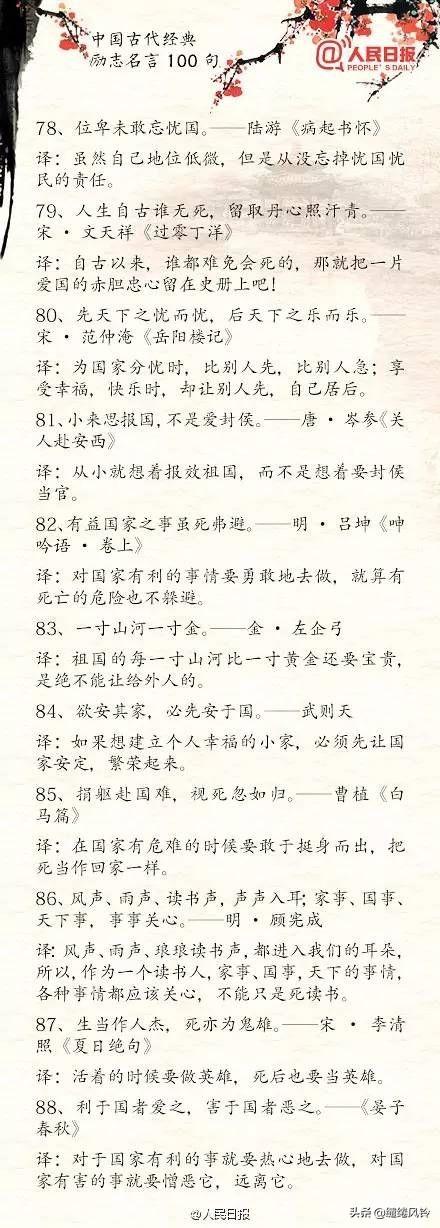 中国古代经典
励志名言 100 句
@人民日报
PEOPLE'S DAILY
78、位卑未敢忘忧国。——陆游《病起书怀》
译：虽然自己地位低微，但是从没忘掉忧国忧
民的责任。
79、人生自古谁无死，留取丹心照汗青。——
宋 · 文天祥《过零丁洋》
译：自古以来，谁都难免会死的，那就把一片
爱国的赤胆忠心留在史册上吧！
80、先天下之忧而忧，后天下之乐而乐。——
宋 · 范仲淹《岳阳楼记》
译：为国家分忧时，比别人先，比别人急；享
受幸福，快乐时，却让别人先，自己居后。
81、小来思报国，不是爱封侯。——唐 · 岑参《关
人赴安西》
译：从小就想着报效祖国，而不是想着要封侯
当官。
82、有益国家之事虽死弗避。——明 · 吕坤《呻
吟语 · 卷上》
译：对国家有利的事情要勇敢地去做，就算有
死亡的危险也不躲避。
83、一寸山河一寸金。——金 · 左企弓
译：祖国的每一寸山河比一寸黄金还要宝贵，
是绝不能让给外人的。
84、欲安其家，必先安于国。——武则天
译：如果想建立个人幸福的小家，必须先让国
家安定，繁荣起来。
85、捐躯赴国难，视死忽如归。——曹植《白
马篇》
译：在国家有危难的时候要敢于挺身而出，把
死当作回家一样。
86、风声、雨声、读书声，声声入耳；家事、国事、
天下事，事事关心。——明 · 顾宪成
译：风声、雨声、琅琅读书声，都进入我们的耳朵，
所以，作为一个读书人，家事、国事，天下的事情，
各种事情都应该关心，不能只是死读书。
87、生当作人杰，死亦为鬼雄。——宋 · 李清
照《夏日绝句》
译：活着的时候要做英雄，死后也要当英雄。
88、利于国者爱之，害于国者恶之。——《晏子
春秋》
译：对于国家有利的事就要热心地去做，对国
家有害的事就要憎恶它，远离它。
@人民日报
头条 @缱绻风铃